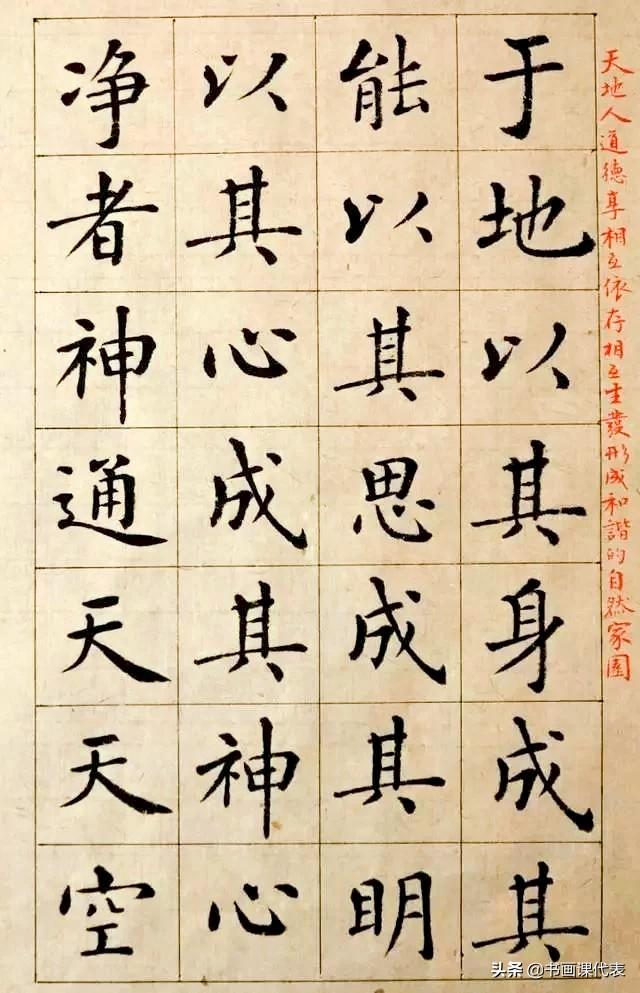 天地人道德享相互依存相互生發形成和諧的自然家園
于地以其身成其
能以其思成其明
以其心成其神心
净者神通天天空
头条 @书画课代表